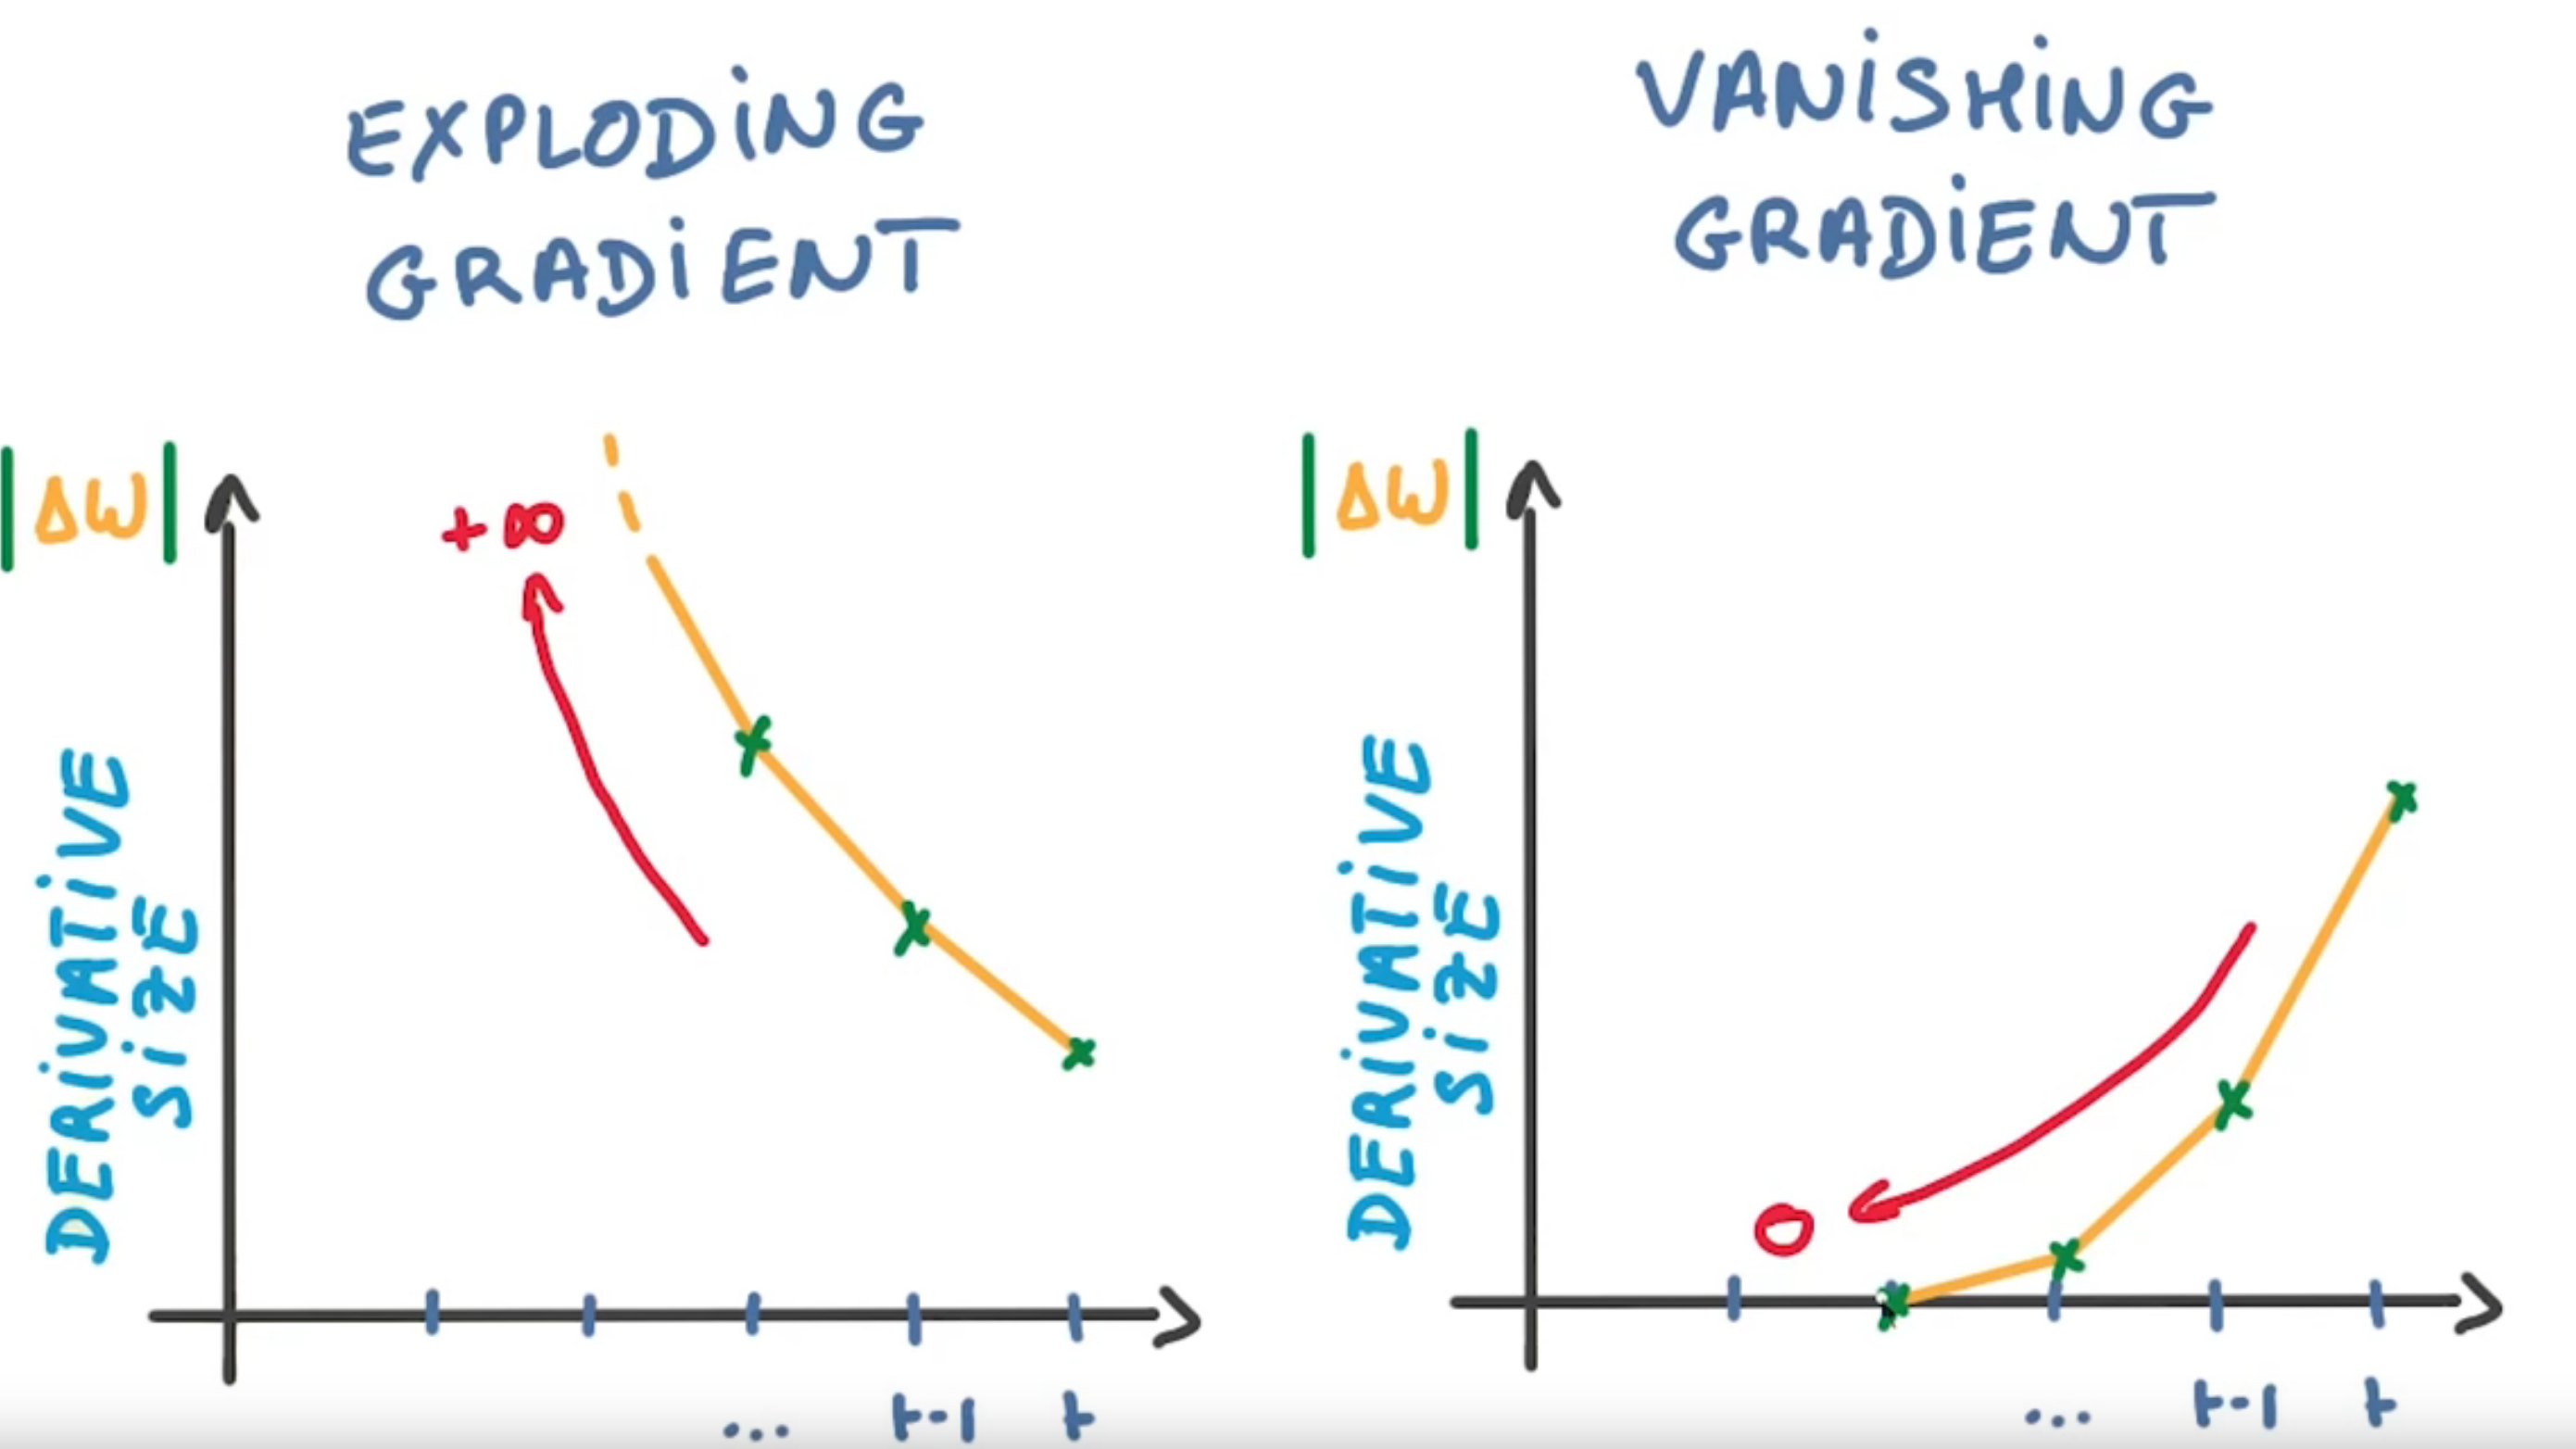 EXPLODING
GRADIENT
|ΔW|
+∞
DERIVATIVE
SIZE
... t-1 t
VANISHING
GRADIENT
|ΔW|
DERIVATIVE
SIZE
0
... t-1 t